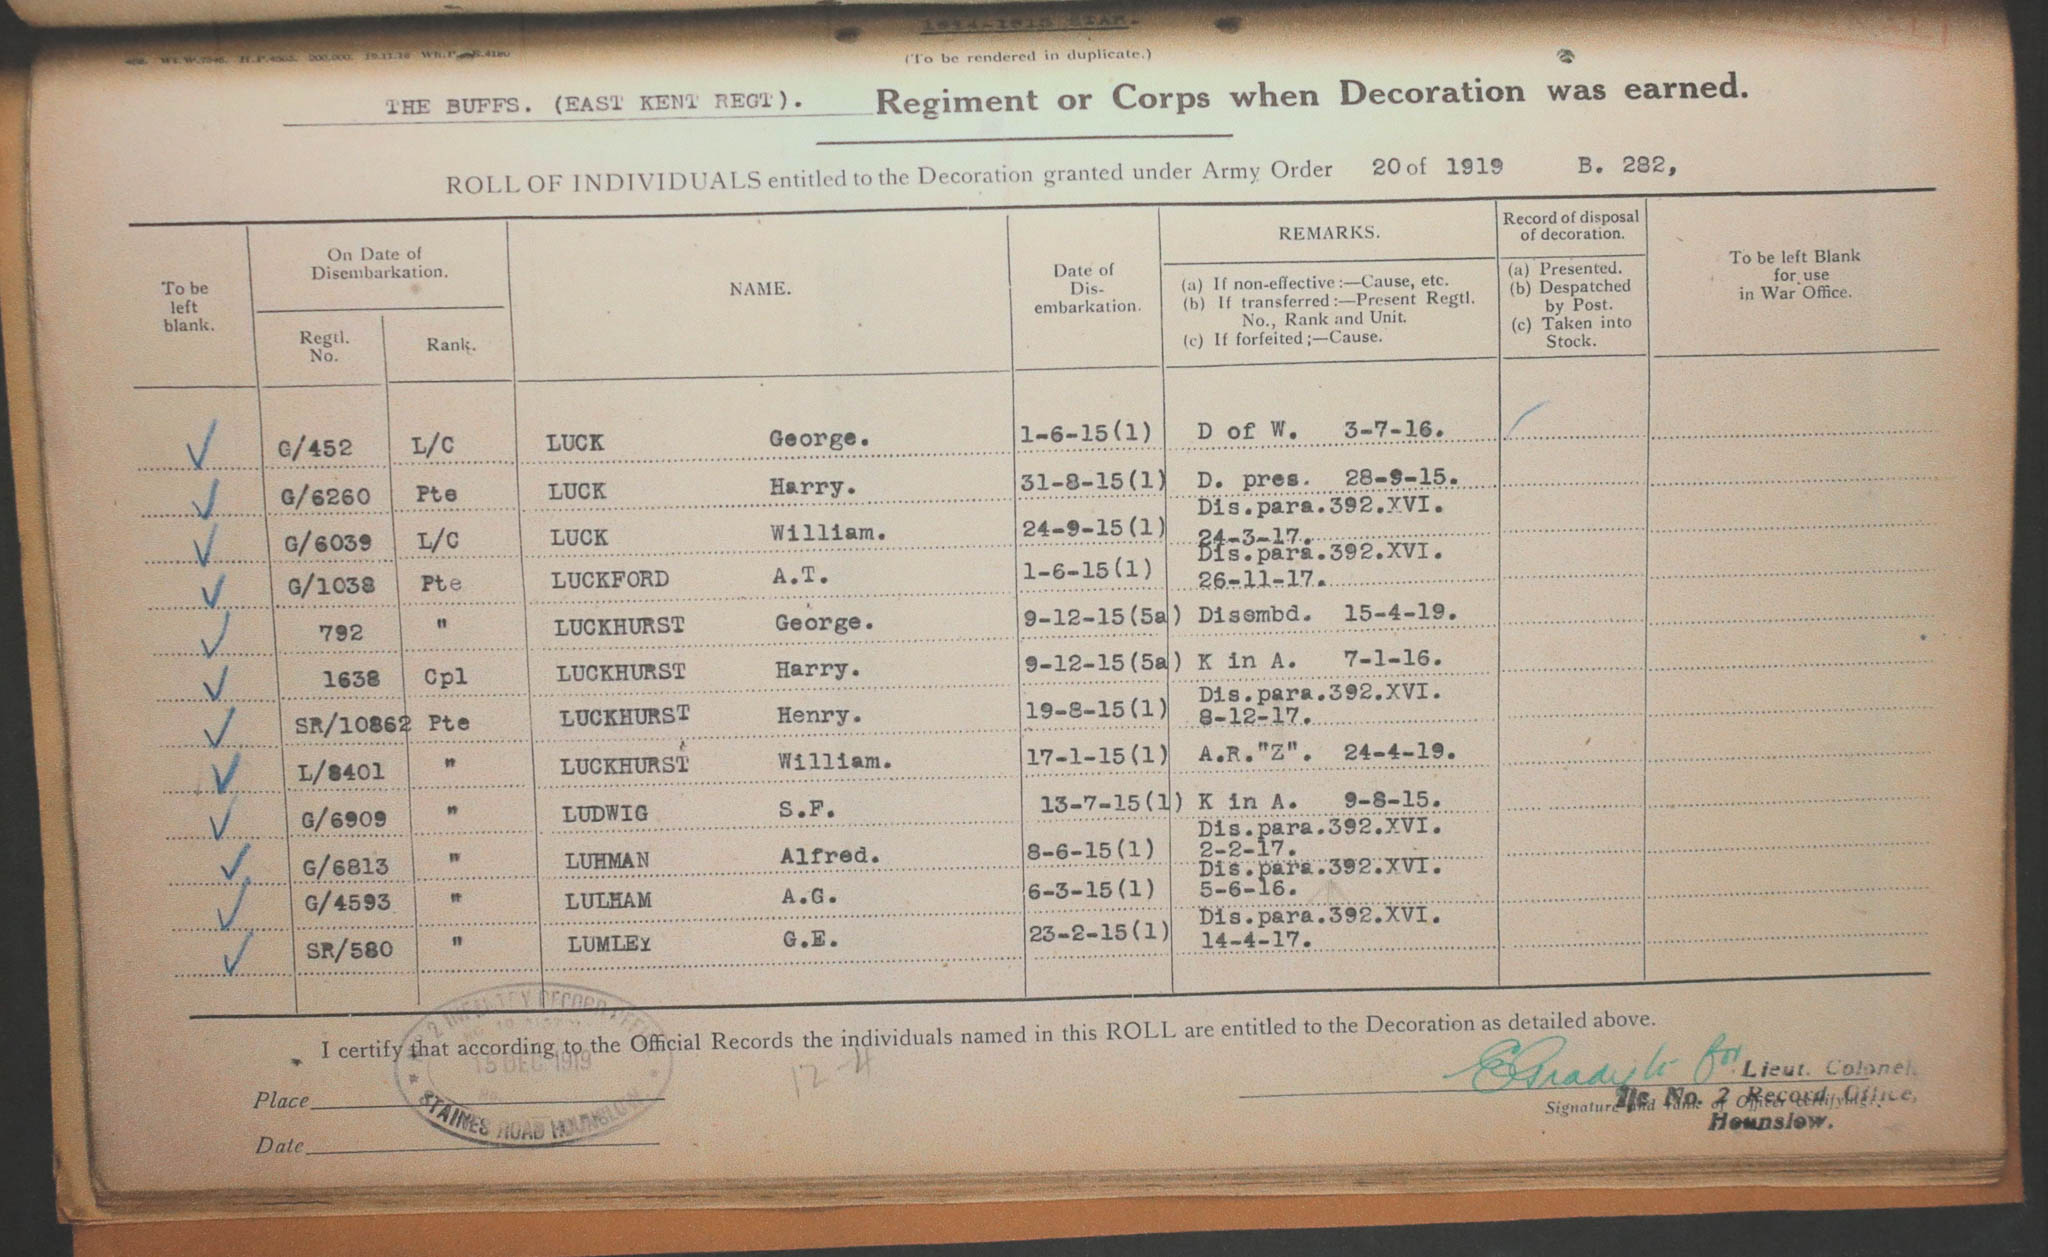 1914-1915 STAR.
(To be rendered in duplicate.)
THE BUFFS. (EAST KENT REGT). Regiment or Corps when Decoration was earned.
ROLL OF INDIVIDUALS entitled to the Decoration granted under Army Order 20 of 1919 B. 282,
To be left blank.
On Date of Disembarkation.
Regtl. No.
Rank.
NAME.
Date of Dis- embarkation.
REMARKS.
(a) If non-effective:—Cause, etc.
(b) If transferred:—Present Regtl. No., Rank and Unit.
(c) If forfeited;—Cause.
Record of disposal of decoration.
(a) Presented.
(b) Despatched by Post.
(c) Taken into Stock.
To be left Blank for use in War Office.
G/452 L/C LUCK George. 1-6-15(1) D of W. 3-7-16.
G/6260 Pte LUCK Harry. 31-8-15(1) D. pres. 28-9-15.
G/6039 L/C LUCK William. 24-9-15(1) Dis.para.392.XVI. 24-3-17.
G/1038 Pte LUCKFORD A.T. 1-6-15(1) Dis.para.392.XVI. 26-11-17.
792 " LUCKHURST George. 9-12-15(5a) Disembd. 15-4-19.
1638 Cpl LUCKHURST Harry. 9-12-15(5a) K in A. 7-1-16.
SR/10862 Pte LUCKHURST Henry. 19-8-15(1) Dis.para.392.XVI. 8-12-17.
L/8401 " LUCKHURST William. 17-1-15(1) A.R."Z". 24-4-19.
G/6909 " LUDWIG S.F. 13-7-15(1) K in A. 9-8-15.
G/6813 " LUHMAN Alfred. 8-6-15(1) Dis.para.392.XVI. 2-2-17.
G/4593 " LULHAM A.G. 6-3-15(1) Dis.para.392.XVI. 5-6-16.
SR/580 " LUMLEY G.E. 23-2-15(1) Dis.para.392.XVI. 14-4-17.
I certify that according to the Official Records the individuals named in this ROLL are entitled to the Decoration as detailed above.
2 INFANTRY RECORD OFFICE
15 DEC 1919
STAINES ROAD HOUNSLOW
12-4
Place
Date
for Lieut. Colonel.
Signature and rank of Officer certifying.
I/c No. 2 Record Office,
Hounslow.